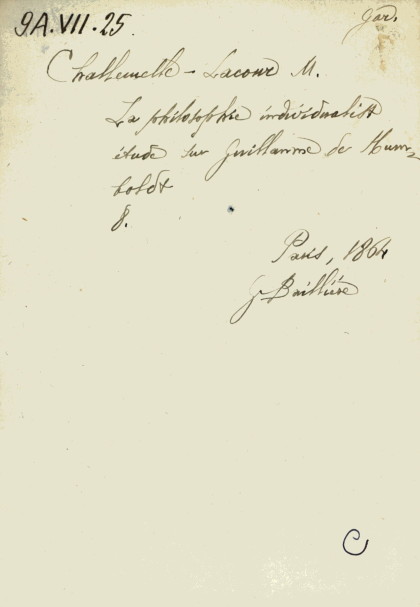 9.A.VII.25.
Gar.
Challemelle - Lacour M.
La philosophie individualist
étude sur Guillaume de Hum-
boldt
8.
Paris, 1864
G Baillière
C